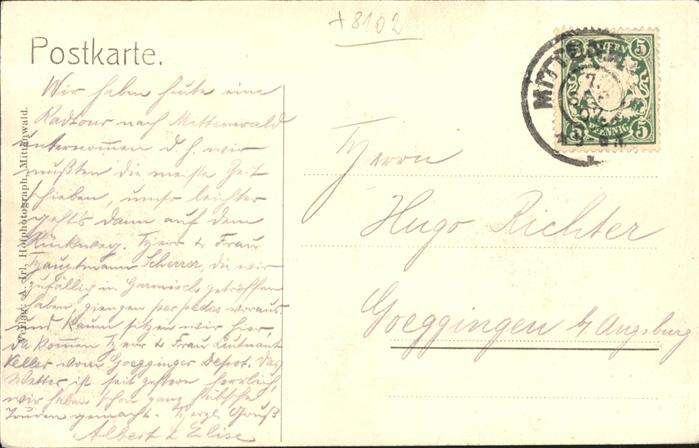 +8102
Postkarte.
Wir haben heute eine
Radtour nach Mittenwald
unternommen d. h. wir
mußten die meiste Zeit
schieben, umso leichter
geht's dann auf dem
Rückweg. Herr & Frau
Hauptmann Scherrer, die wir
zufällig in Garmisch getroffen
haben, giengen per pedes voraus
und kaum sitzen wir hier,
da kommen Herr & Frau Leutnant
Keller vom Goegginger Depot. Das
Wetter ist seit gestern herrlich,
wir haben schon ganz hübsche
Touren gemacht. Herzl. Gruß
Albert & Elise
Verlag: Hofphotograph, Mittenwald.
BAYERN
5 5
5 5
PFENNIG
MITTENW
7.
07
Herrn
Hugo Richter
Goeggingen b/Augsburg